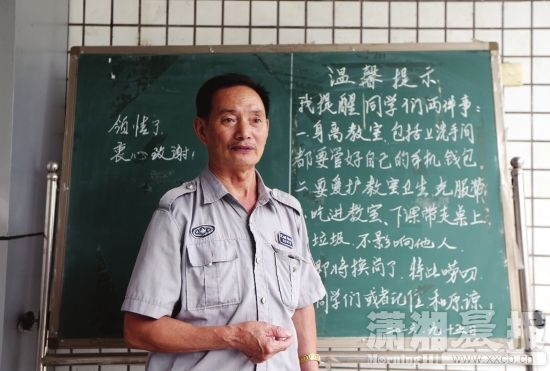 领情了
衷心致谢!
温馨提示
我提醒同学们两件事:
一.身离教室.包括上洗手间
都要管好自己的手机.钱包.
二.要爱护教室卫生.克服带
吃进教室.下课带走桌上
垃圾.不影响他人.
即将换岗了.特此唠叨
同学们或者记住和原谅
九.十五日
潇湘晨报
www.xxcb.cn